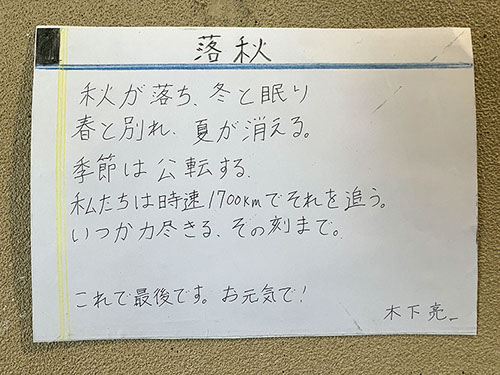 落秋
秋が落ち、冬と眠り
春と別れ、夏が消える。
季節は公転する。
私たちは時速1700kmでそれを追う。
いつか力尽きる、その刻まで。
これで最後です。お元気で!
木下亮一